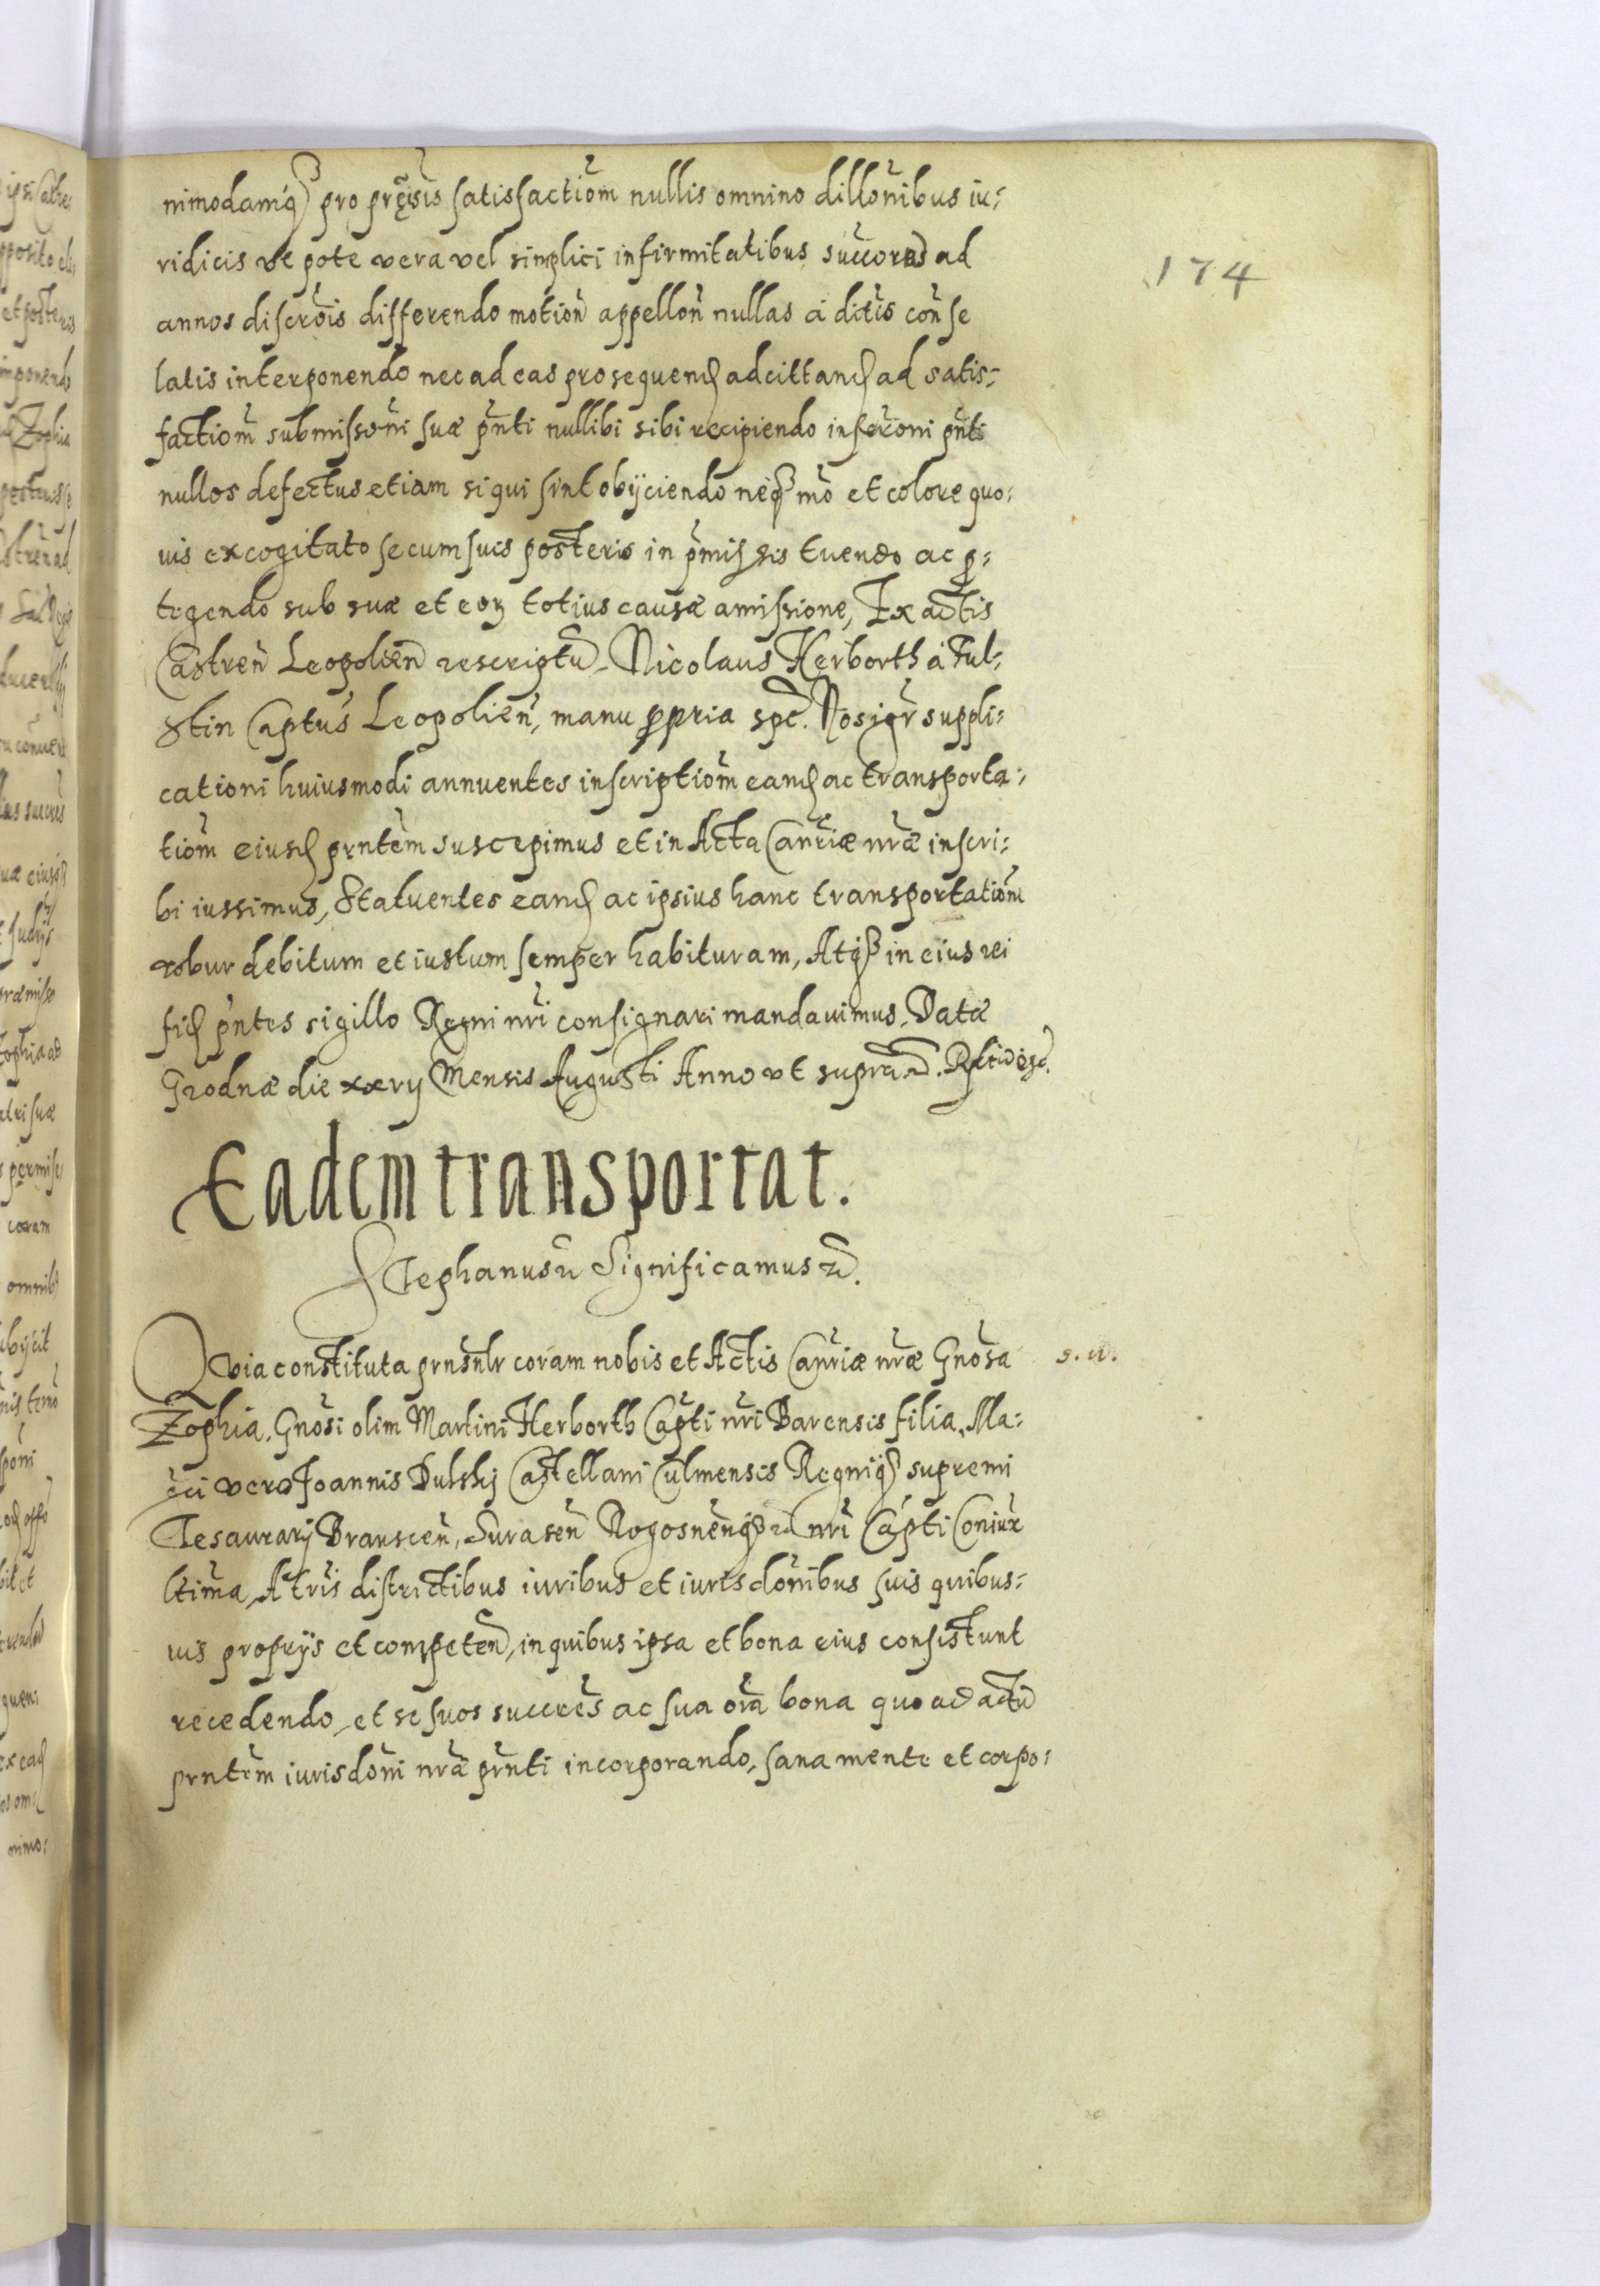 nimodamq́ pro pręsis satisfactiom nullis omnino dillonibus iu:
174
ridicis ut pote vera vel simplici infirmitatibus succores ad
annos discrõis differendo motioñ appelloñ nullas a dictis coñ se
latis interponendo nec ad eas prosequend adcittand ad satis:
factiom submissoni suæ pñti nullibi sibi recipiendo inscr̃oni pñti
nullos defectus etiam si qui sint obijciendo neq́ mõ et colore quo:
uis excogitato se cum suis posteris in p̃missis tuendo ac p:
tegendo sub suæ et eoꝝ totius causæ amissione, Ex actis
Castreñ Leopolieñ rescriptũ Nicolaus Herborth á Ful:
stin Captus Leopolieñ, manu ppria spt. Nos igr̃ suppli:
cationi huiusmodi annuentes inscriptiom eand ac transporta:
tiom eiusd prñtem suscepimus et in Acta Cancriæ nr̃æ inscri:
bi iussimus, Statuentes eand ac ipsius hanc transportationem
robur debitum et iustum semper habituram, Atq́ in eius rei
fid p̃ntes sigillo Regni nr̃i consignari mandauimus. Datæ
Grodnæ die xxvij Mensis Augusti Anno ut supra.
Eadem transportat.
Stephanus Significamus.
Quia constituta prñsntr coram nobis et Actis Cancriæ nr̃æ Gnõsa
Zophia, Gnõsi olim Martini Herborth Capti nr̃i Barensis filia, Ma:
gci vero Joannis Dulskj Castellani Culmensis Regniq́ supremi
Tesaurarij Bransceñ, Suraseñ Rogosneñq́ nr̃i Capti Coniux
ltima, A tr̃is districtibus iuribus et iurisdonibus suis quibus:
uis proprijs et competeñ, in quibus ipsa et bona eius consistunt
recedendo, et se suos succr̃es ac sua om̃a bona quo ad actũ
prñtem iurisdoni nr̃æ prñti incorporando, sana mente et corpo: